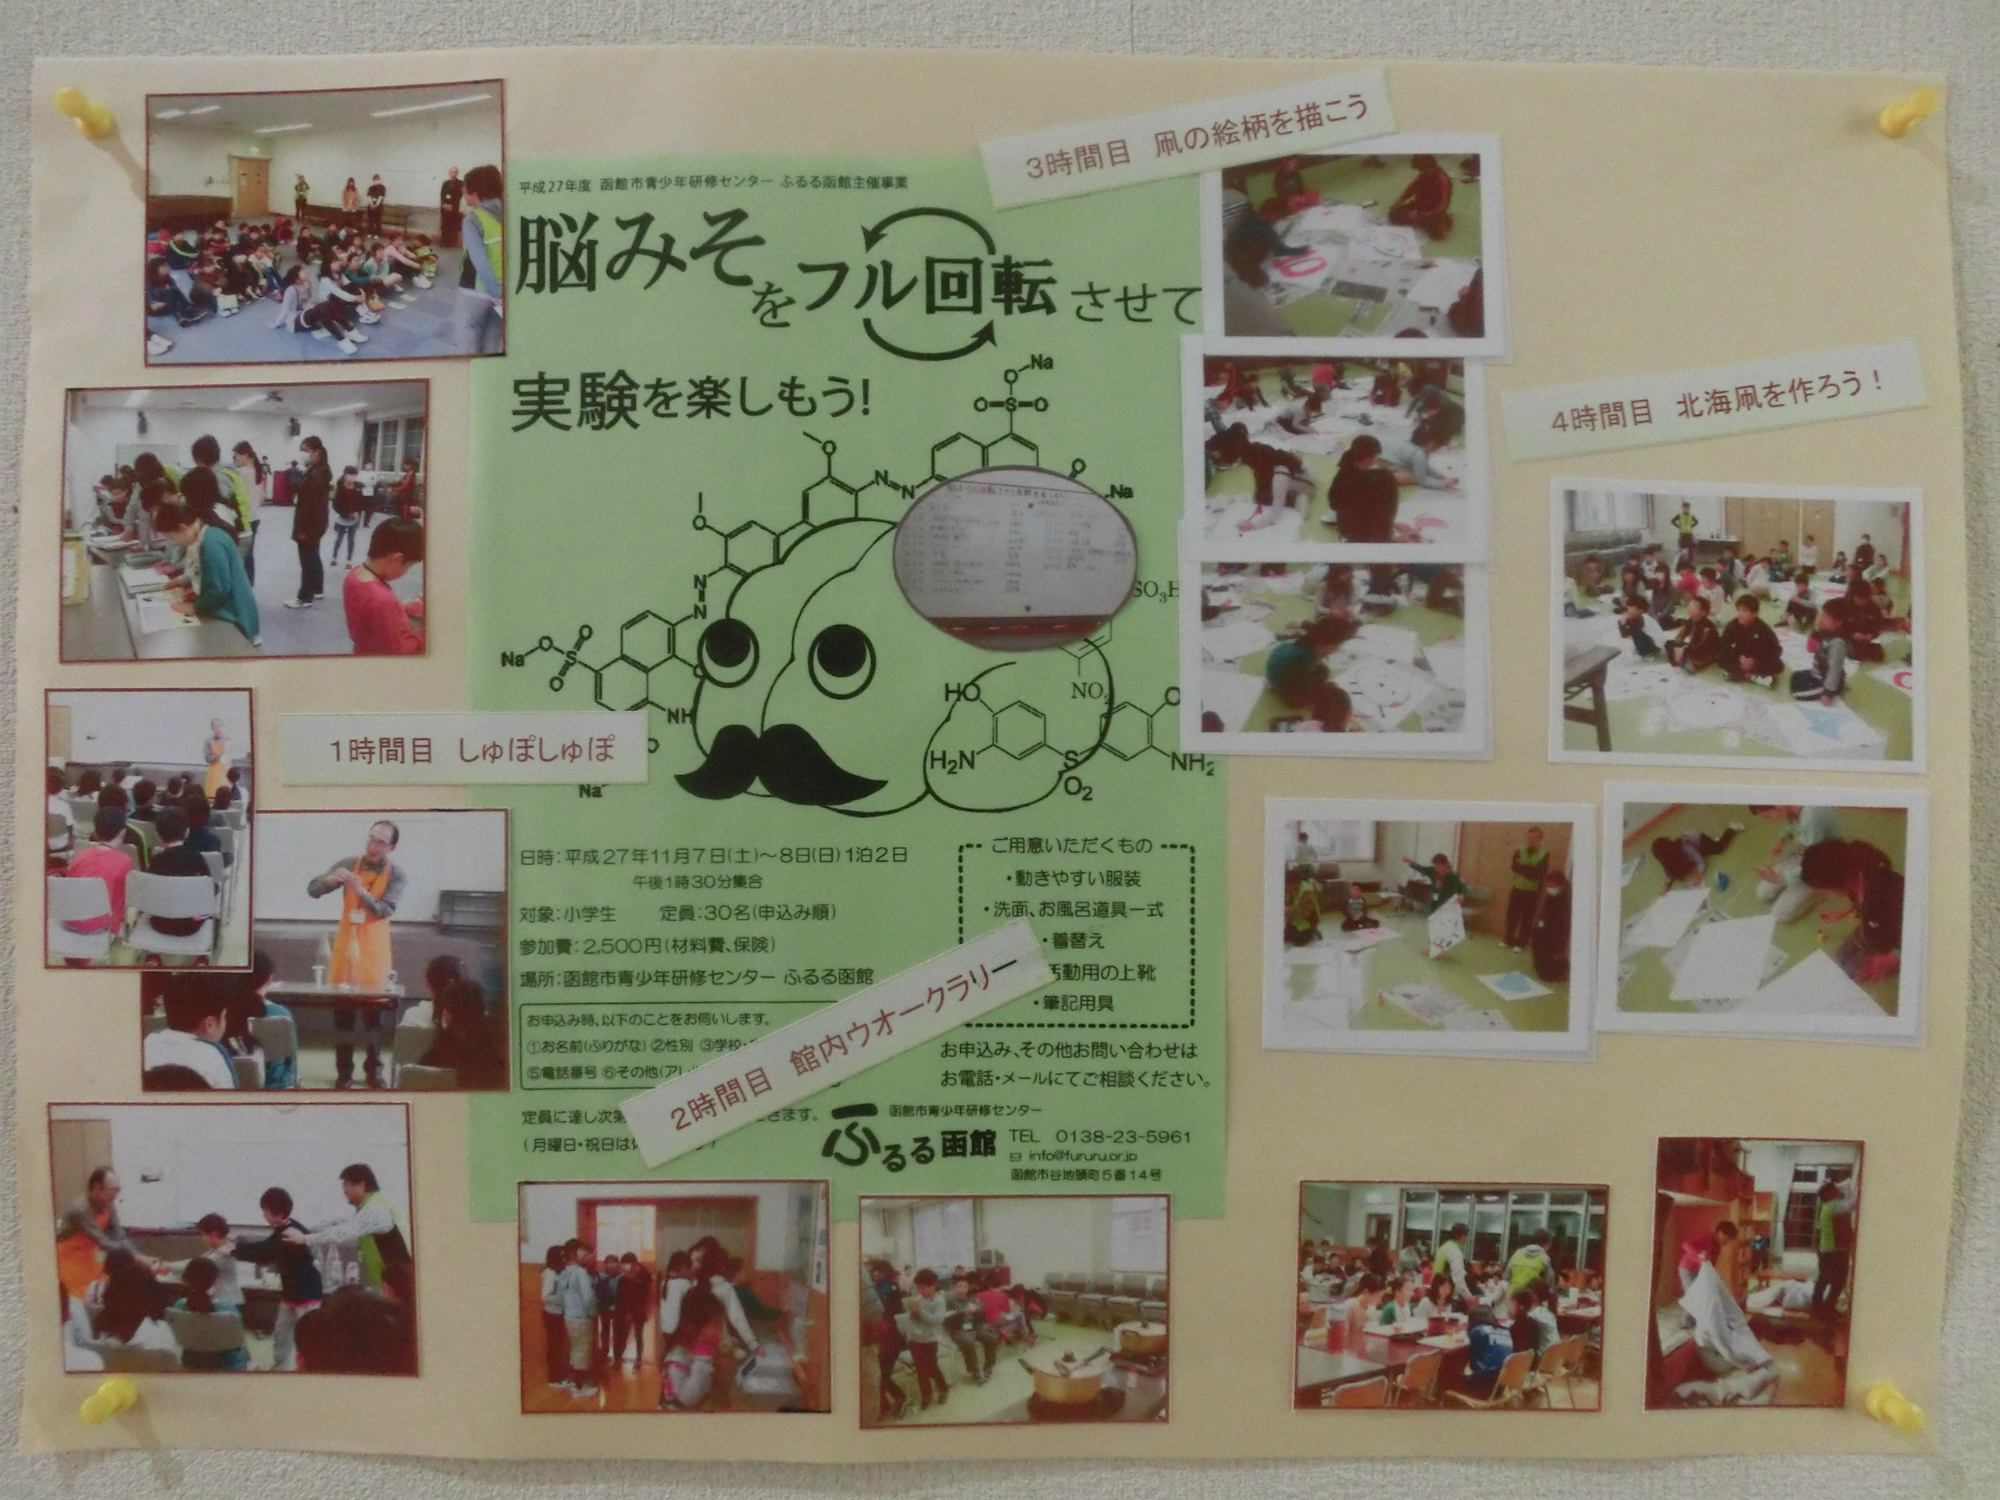 平成27年度 函館市青少年研修センター ふるる函館主催事業
脳みそをフル回転させて
実験を楽しもう!
3時間目 凧の絵柄を描こう
4時間目 北海凧を作ろう！
1時間目 しゅぽしゅぽ
2時間目 館内ウオークラリー
Na
O
O=S=O
Na
O
O
N=N
O
N
N
Na
O
S
O
O
NH
O
Na
SO3H
NO2
HO
H2N
S
O2
O
NH2
日時:平成27年11月7日(土)～8日(日)1泊2日
午後1時30分集合
対象:小学生 定員:30名(申込み順)
参加費:2,500円(材料費、保険)
場所:函館市青少年研修センター ふるる函館
お申込み時、以下のことをお伺いします。
①お名前(ふりがな) ②性別 ③学校・
⑤電話番号 ⑥その他(アレ
定員に達し次第 きます。
(月曜日・祝日は
ご用意いただくもの
・動きやすい服装
・洗面、お風呂道具一式
・着替え
活動用の上靴
・筆記用具
お申込み、その他お問い合わせは
お電話・メールにてご相談ください。
函館市青少年研修センター
ふるる函館
TEL 0138-23-5961
info@fururu.or.jp
函館市谷地頭町5番14号